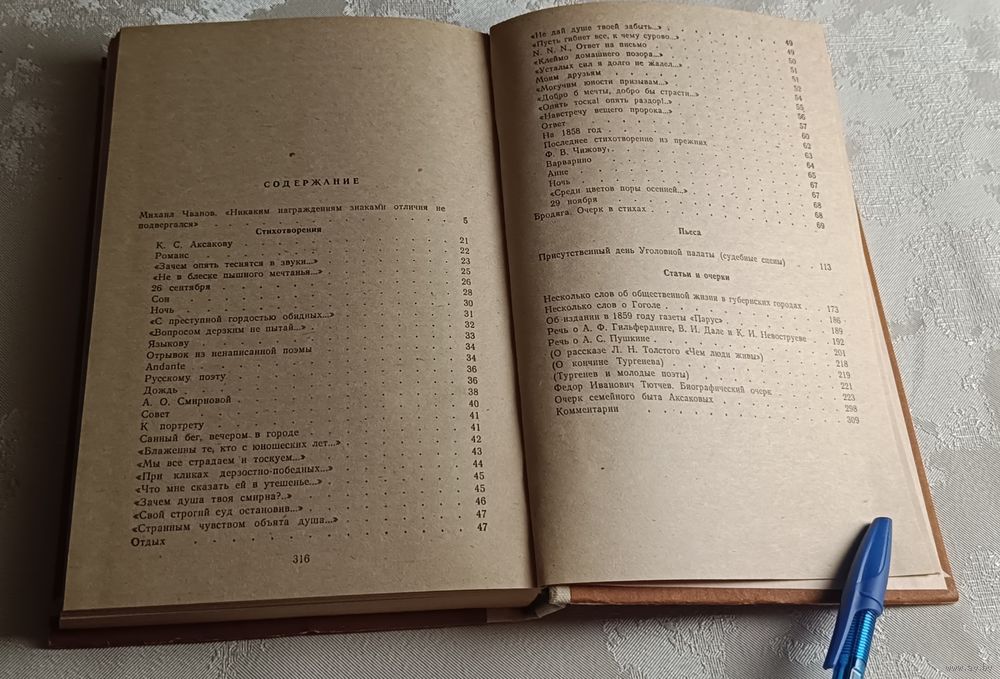 СОДЕРЖАНИЕ
Михаил Чванов. «Никаким награждениям знаками отличия не
подвергался» 5
Стихотворения
К. С. Аксакову 21
Романс 22
«Зачем опять теснятся в звуки...» 23
«Не в блеске пышного мечтанья...» 25
26 сентября 26
Сон 28
Ночь 30
«С преступной гордостью обидных...» 31
«Вопросом дерзким не пытай...» 32
Языкову 33
Отрывок из ненаписанной поэмы 34
Andante 34
Русскому поэту 36
Дождь 36
А. О. Смирновой 38
Совет 40
К портрету 41
Санный бег, вечером в городе 41
«Блаженны те, кто с юношеских лет...» 42
«Мы все страдаем и тоскуем...» 43
«При кликах дерзостно-победных...» 44
«Что мне сказать ей в утешенье...» 45
«Зачем душа твоя смирна?..» 45
«Свой строгий суд остановив...» 46
«Странным чувством объята душа...» 47
Отдых 47
316
«Не дай душе твоей забыть...» 49
«Пусть гибнет все, к чему сурово...» 49
N. N. N., Ответ на письмо 50
«Клеймо домашнего позора...» 51
«Усталых сил я долго не жалел...» 51
Моим друзьям 52
«Могучим юности призывам...» 54
«Добро б мечты, добро бы страсти...» 55
«Опять тоска! опять раздор!..» 56
«Навстречу вещего пророка...» 57
Ответ 60
На 1858 год 62
Последнее стихотворение из прежних 63
Ф. В. Чижову 64
Варварино 65
Анне 67
Ночь 67
«Среди цветов поры осенней...» 68
29 ноября 68
Бродяга. Очерк в стихах 69
Пьеса
Присутственный день Уголовной палаты (судебные сцены) 113
Статьи и очерки
Несколько слов об общественной жизни в губернских городах 173
Несколько слов о Гоголе 186
Об издании в 1859 году газеты «Парус» 189
Речь о А. Ф. Гильфердинге, В. И. Дале и К. И. Невоструеве 192
Речь о А. С. Пушкине 201
(О рассказе Л. Н. Толстого «Чем люди живы») 218
(О кончине Тургенева) 219
(Тургенев и молодые поэты) 221
Федор Иванович Тютчев. Биографический очерк 223
Очерк семейного быта Аксаковых 298
Комментарии 309
www.av.by